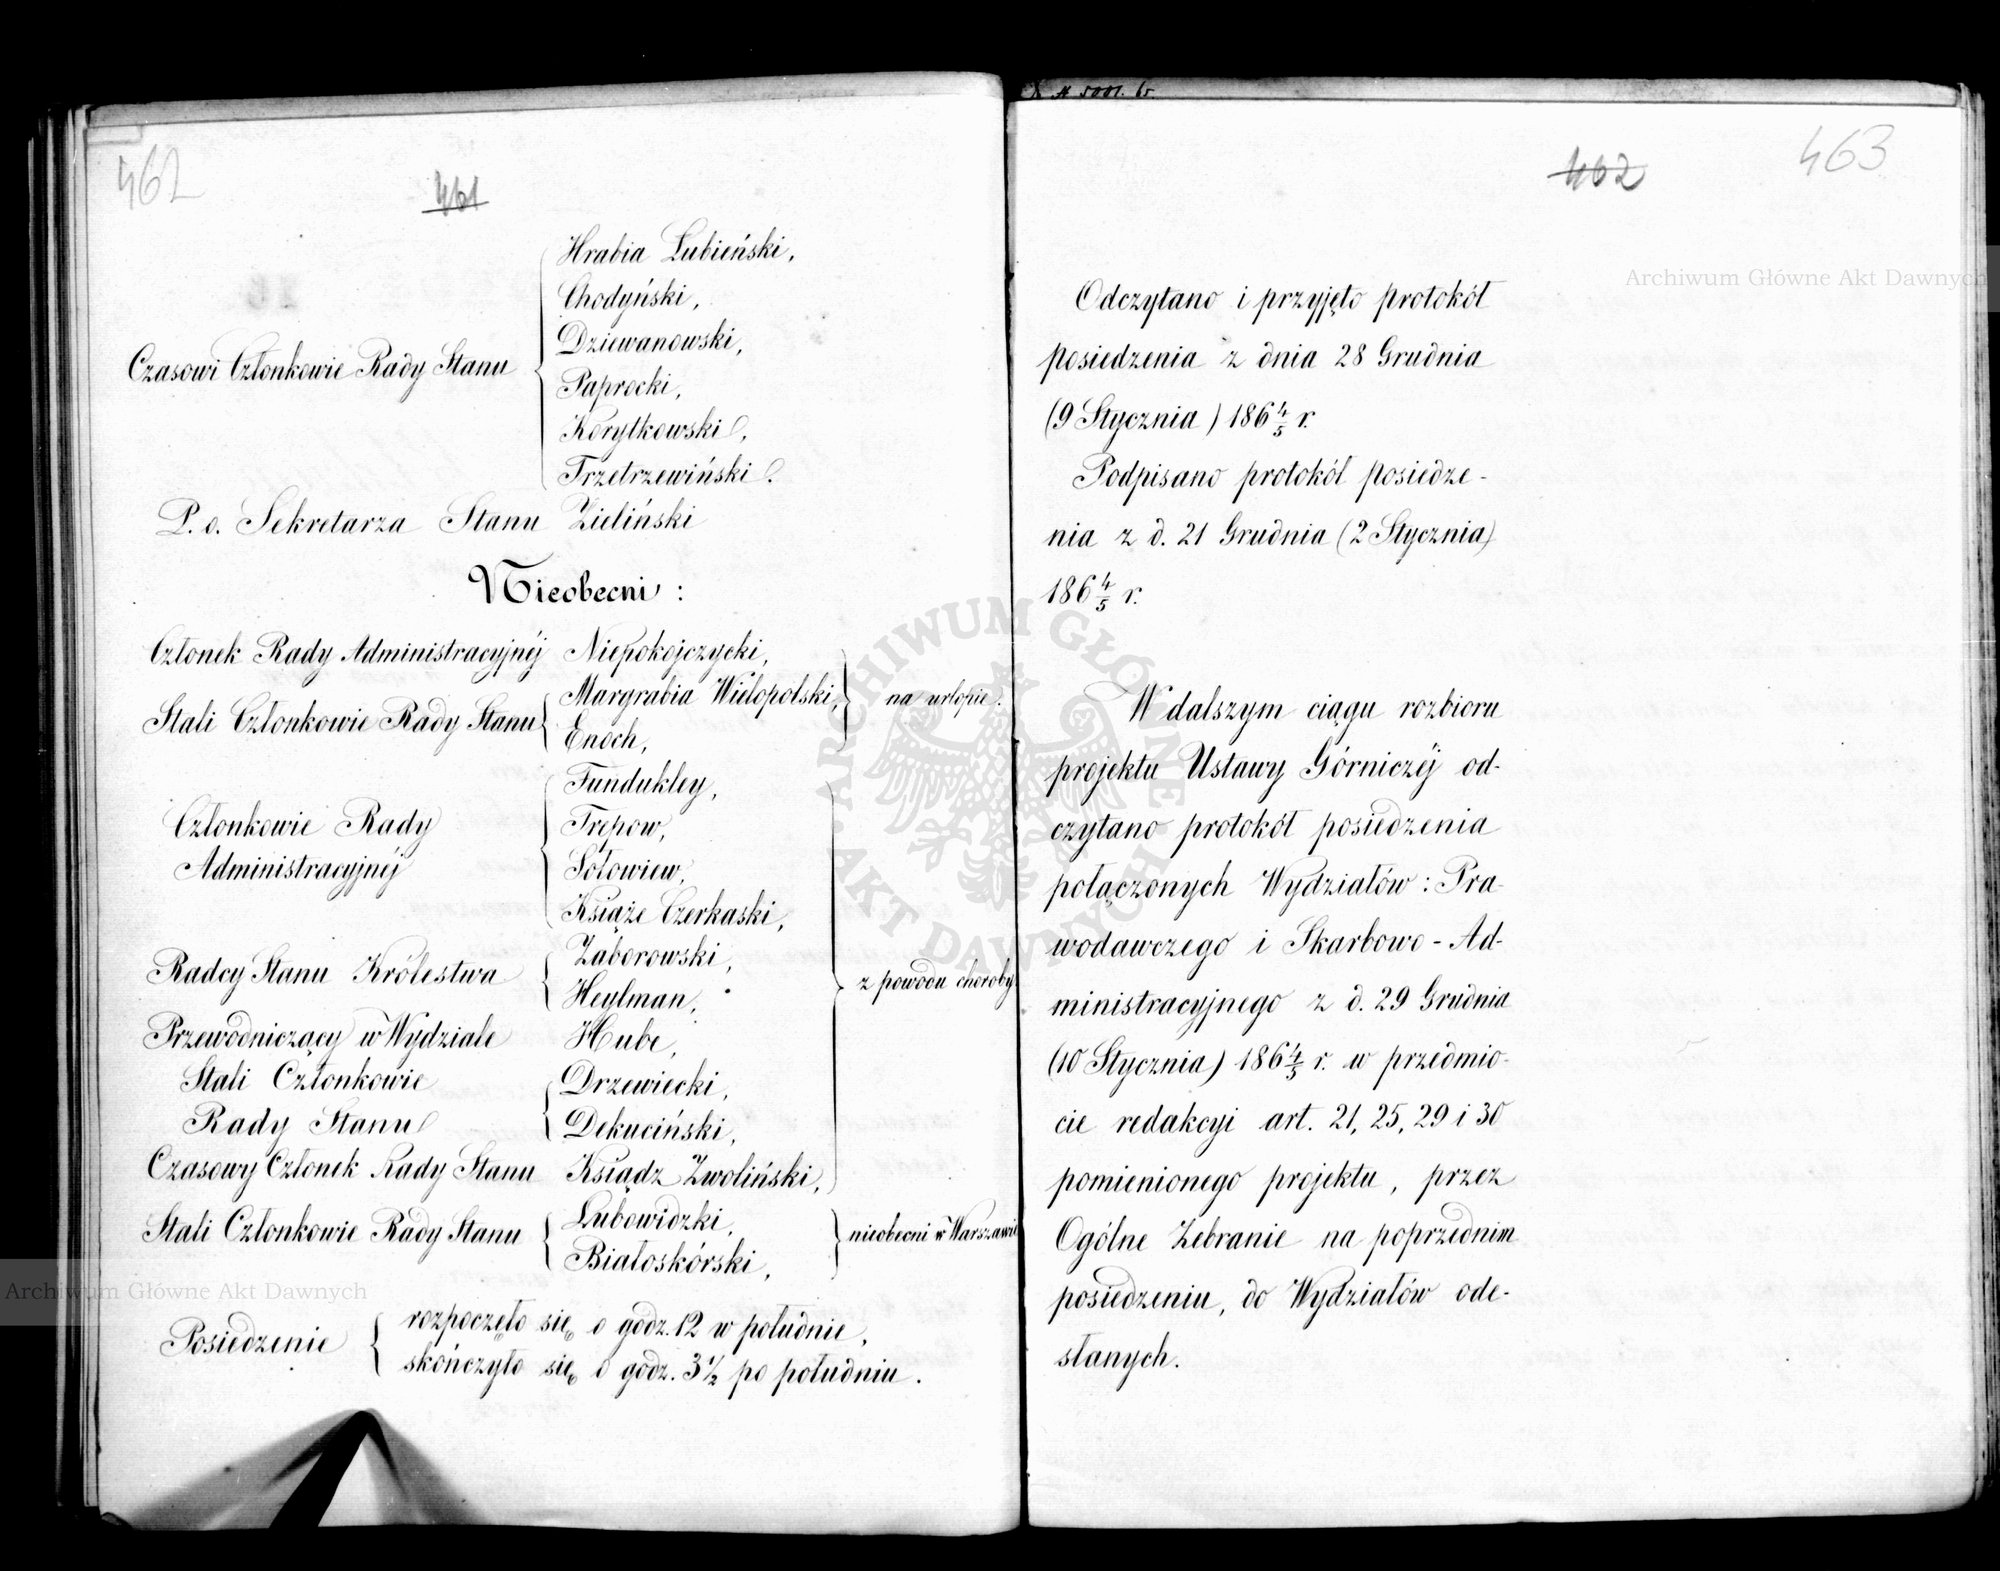 462
461
Hrabia Łubieński,
Chodyński,
Dziewanowski,
Czasowi Członkowie Rady Stanu
Paprocki,
Korytkowski,
Trzetrzewiński.
P. o. Sekretarza Stanu Zieliński
Nieobecni:
Członek Rady Administracyjnéj Niepokojczycki,
Stali Członkowie Rady Stanu Margrabia Wielopolski, na urlopie.
Enoch,
Fundukley,
Członkowie Rady Trepow,
Administracyjnéj Sołowiew,
Książe Czerkaski,
Radcy Stanu Królestwa Zaborowski, z powodu choroby
Heylman,
Przewodniczący w Wydziale Hube,
Stali Członkowie Drzewiecki,
Rady Stanu Dekuciński,
Czasowy Członek Rady Stanu Ksiądz Zwoliński,
Stali Członkowie Rady Stanu Lubowidzki, nieobecni w Warszawie
Białoskórski,
Posiedzenie rozpoczęło się o godz. 12 w południe,
skończyło się o godz. 3 1/2 po południu.
№ 5001. 65.
462
463
Odczytano i przyjęto protokół
posiedzenia z dnia 28 Grudnia
(9 Stycznia) 186 4/5 r.
Podpisano protokół posiedze-
nia z d. 21 Grudnia (2 Stycznia)
186 4/5 r.
W dalszym ciągu rozbioru
projektu Ustawy Górniczéj od-
czytano protokół posiedzenia
połączonych Wydziałów: Pra-
wodawczego i Skarbowo-Ad-
ministracyjnego z d. 29 Grudnia
(10 Stycznia) 186 4/5 r. w przedmio-
cie redakcyi art. 21, 25, 29 i 30
pomienionego projektu, przez
Ogólne Zebranie na poprzednim
posiedzeniu, do Wydziałów ode-
słanych.
Archiwum Główne Akt Dawnych
Archiwum Główne Akt Dawnych
ARCHIWUM GŁÓWNE AKT DAWNYCH